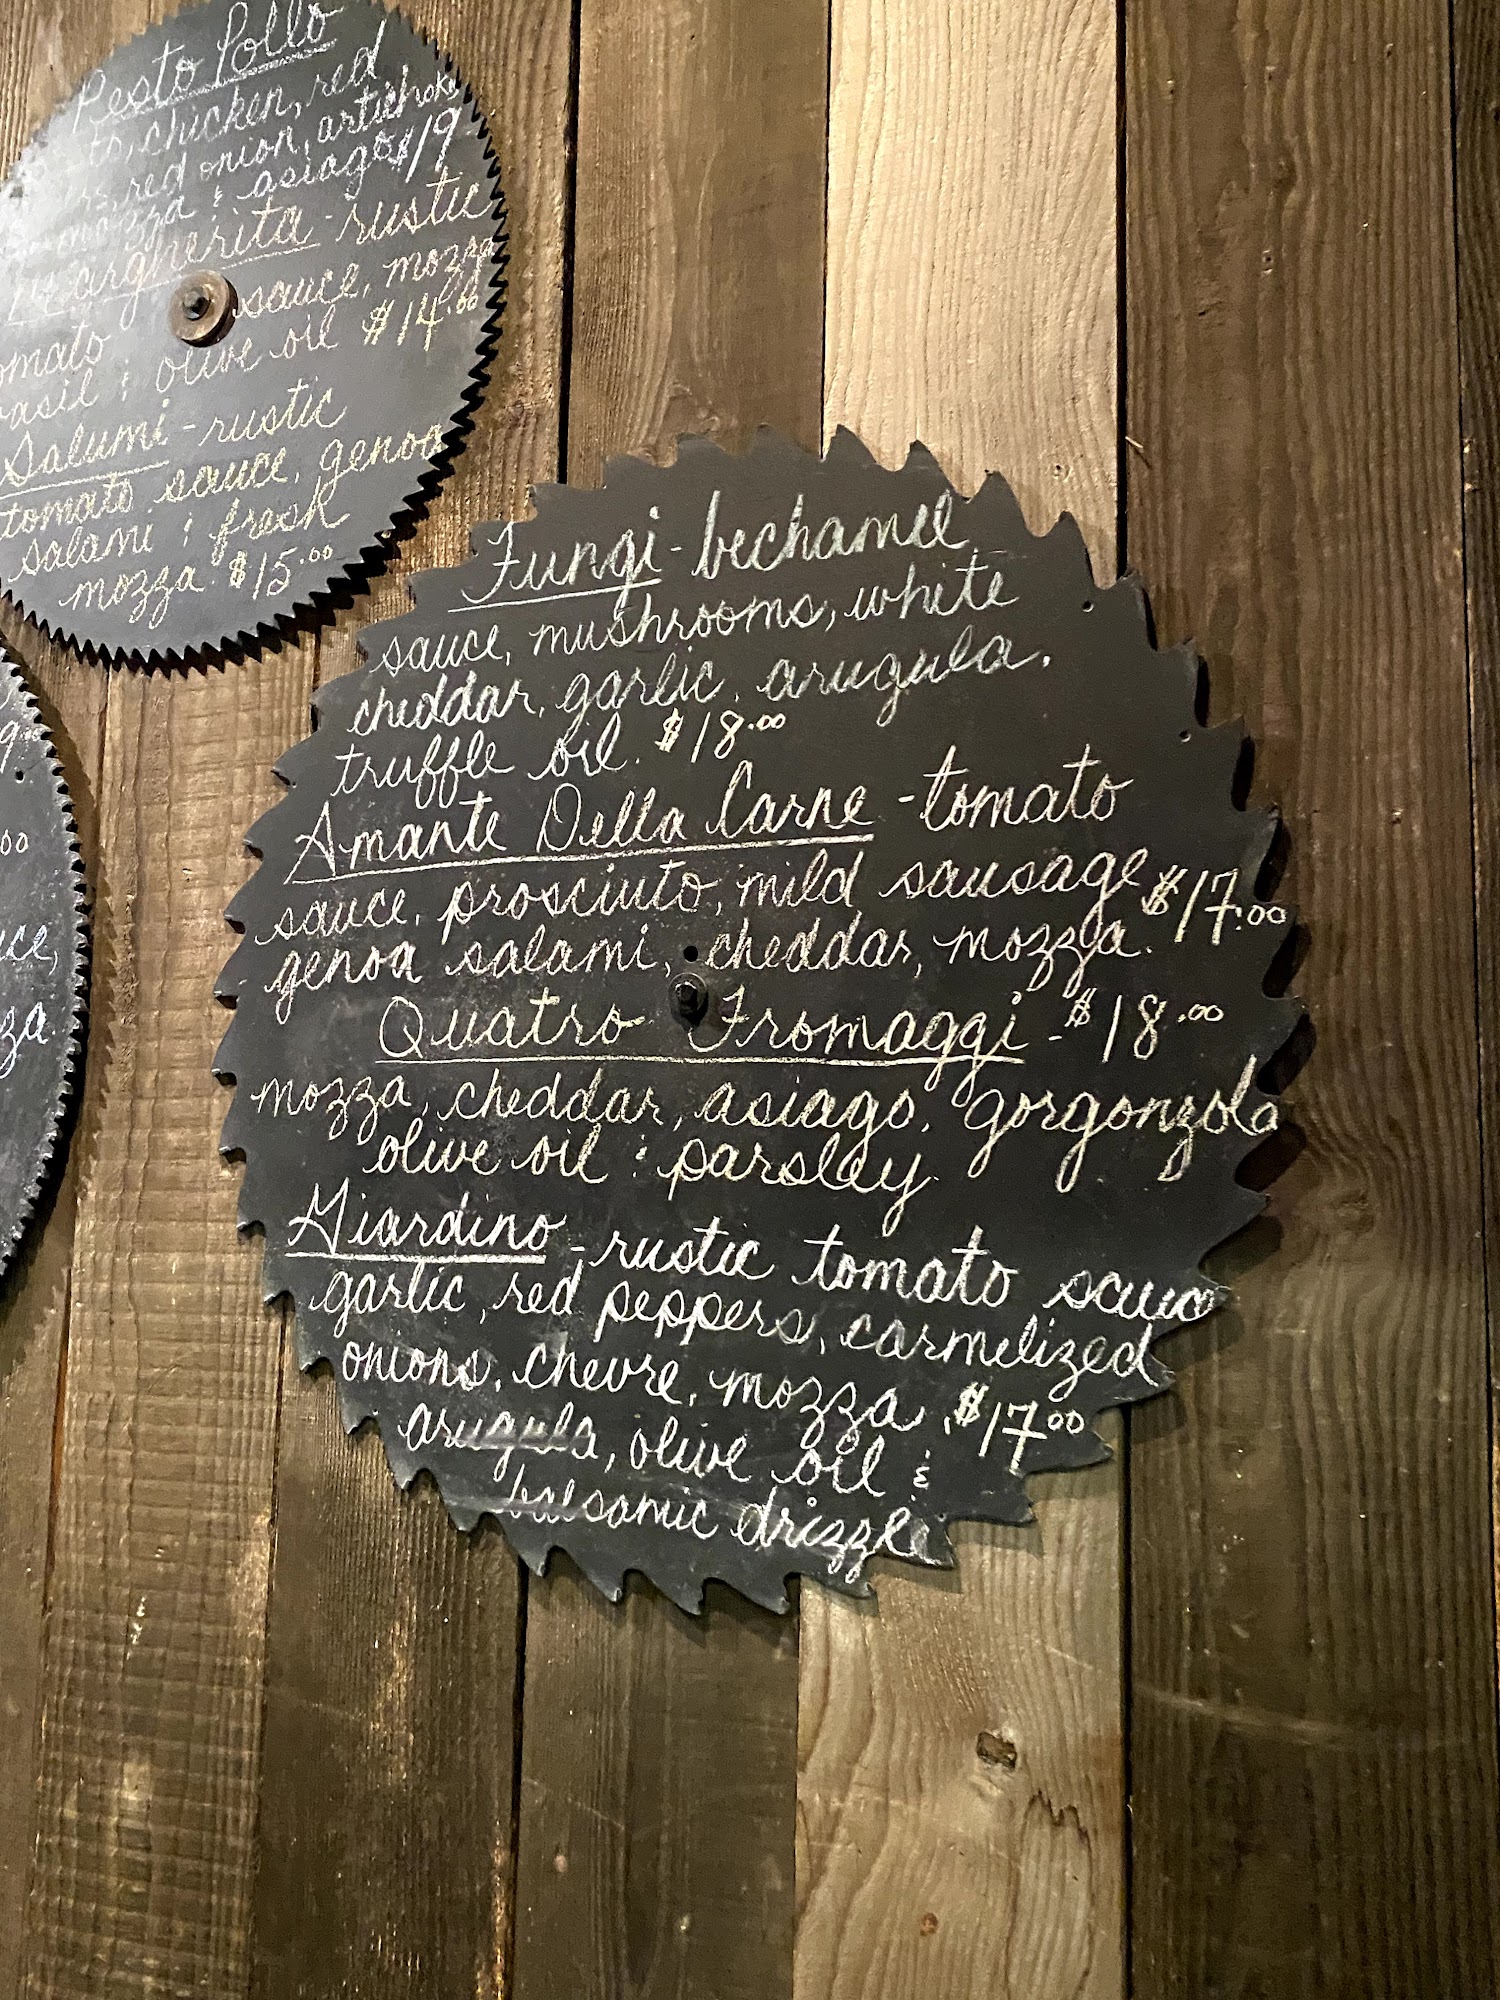 Pesto Pollo
to, chicken, red
rs, red onion, artichoke
mozza & asiago $19
Margherita - rustic
tomato sauce, mozza
basil & olive oil $14.00
Salumi - rustic
tomato sauce, genoa
salami & fresh
mozza $15.00
00
ce,
za.
Fungi - bechamel
sauce, mushrooms, white
cheddar, garlic, arugula.
truffle oil. $18.00
Amante Della Carne - tomato
sauce, prosciuto, mild sausage $17.00
genoa salami, cheddar, mozza.
Quatro Fromaggi - $18.00
mozza, cheddar, asiago, gorgonzola
olive oil & parsley
Giardino - rustic tomato sauce
garlic, red peppers, carmelized
onions, chevre, mozza, $17.00
arugula, olive oil &
balsamic drizzle